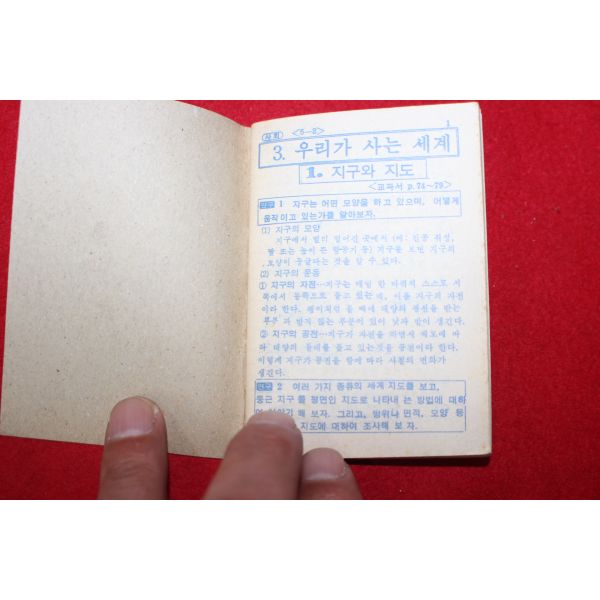 사회 <6-2> 1
3. 우리가 사는 세계
1. 지구와 지도
<교과서 p.74~79>
연구 1 지구는 어떤 모양을 하고 있으며, 어떻게
움직이고 있는가를 알아보자.
(1) 지구의 모양
지구에서 멀리 떨어진 곳에서 (예: 인공 위성,
달 또는 높이 뜬 항공기 등) 지구를 보면 지구의
모양이 둥글다는 것을 알 수 있다.
(2) 지구의 운동
① 지구의 자전…지구는 매일 한 바퀴씩 스스로 서
쪽에서 동쪽으로 돌고 있는 데, 이를 지구의 자전
이라 한다. 팽이처럼 돌 때에 태양의 광선을 받는
부분과 받지 않는 부분이 있어 낮과 밤이 생긴다.
② 지구의 공전…지구가 자전을 하면서 궤도에 따
라 태양의 둘레를 돌고 있는것을 공전이라 한다.
이렇게 지구가 공전을 함에 따라 사철의 변화가
생긴다.
연구 2 여러 가지 종류의 세계 지도를 보고,
둥근 지구를 평면인 지도로 나타내 는 방법에 대하
여 이야기 해 보자. 그리고, 방위나 면적, 모양 등
지도에 대하여 조사해 보 자.